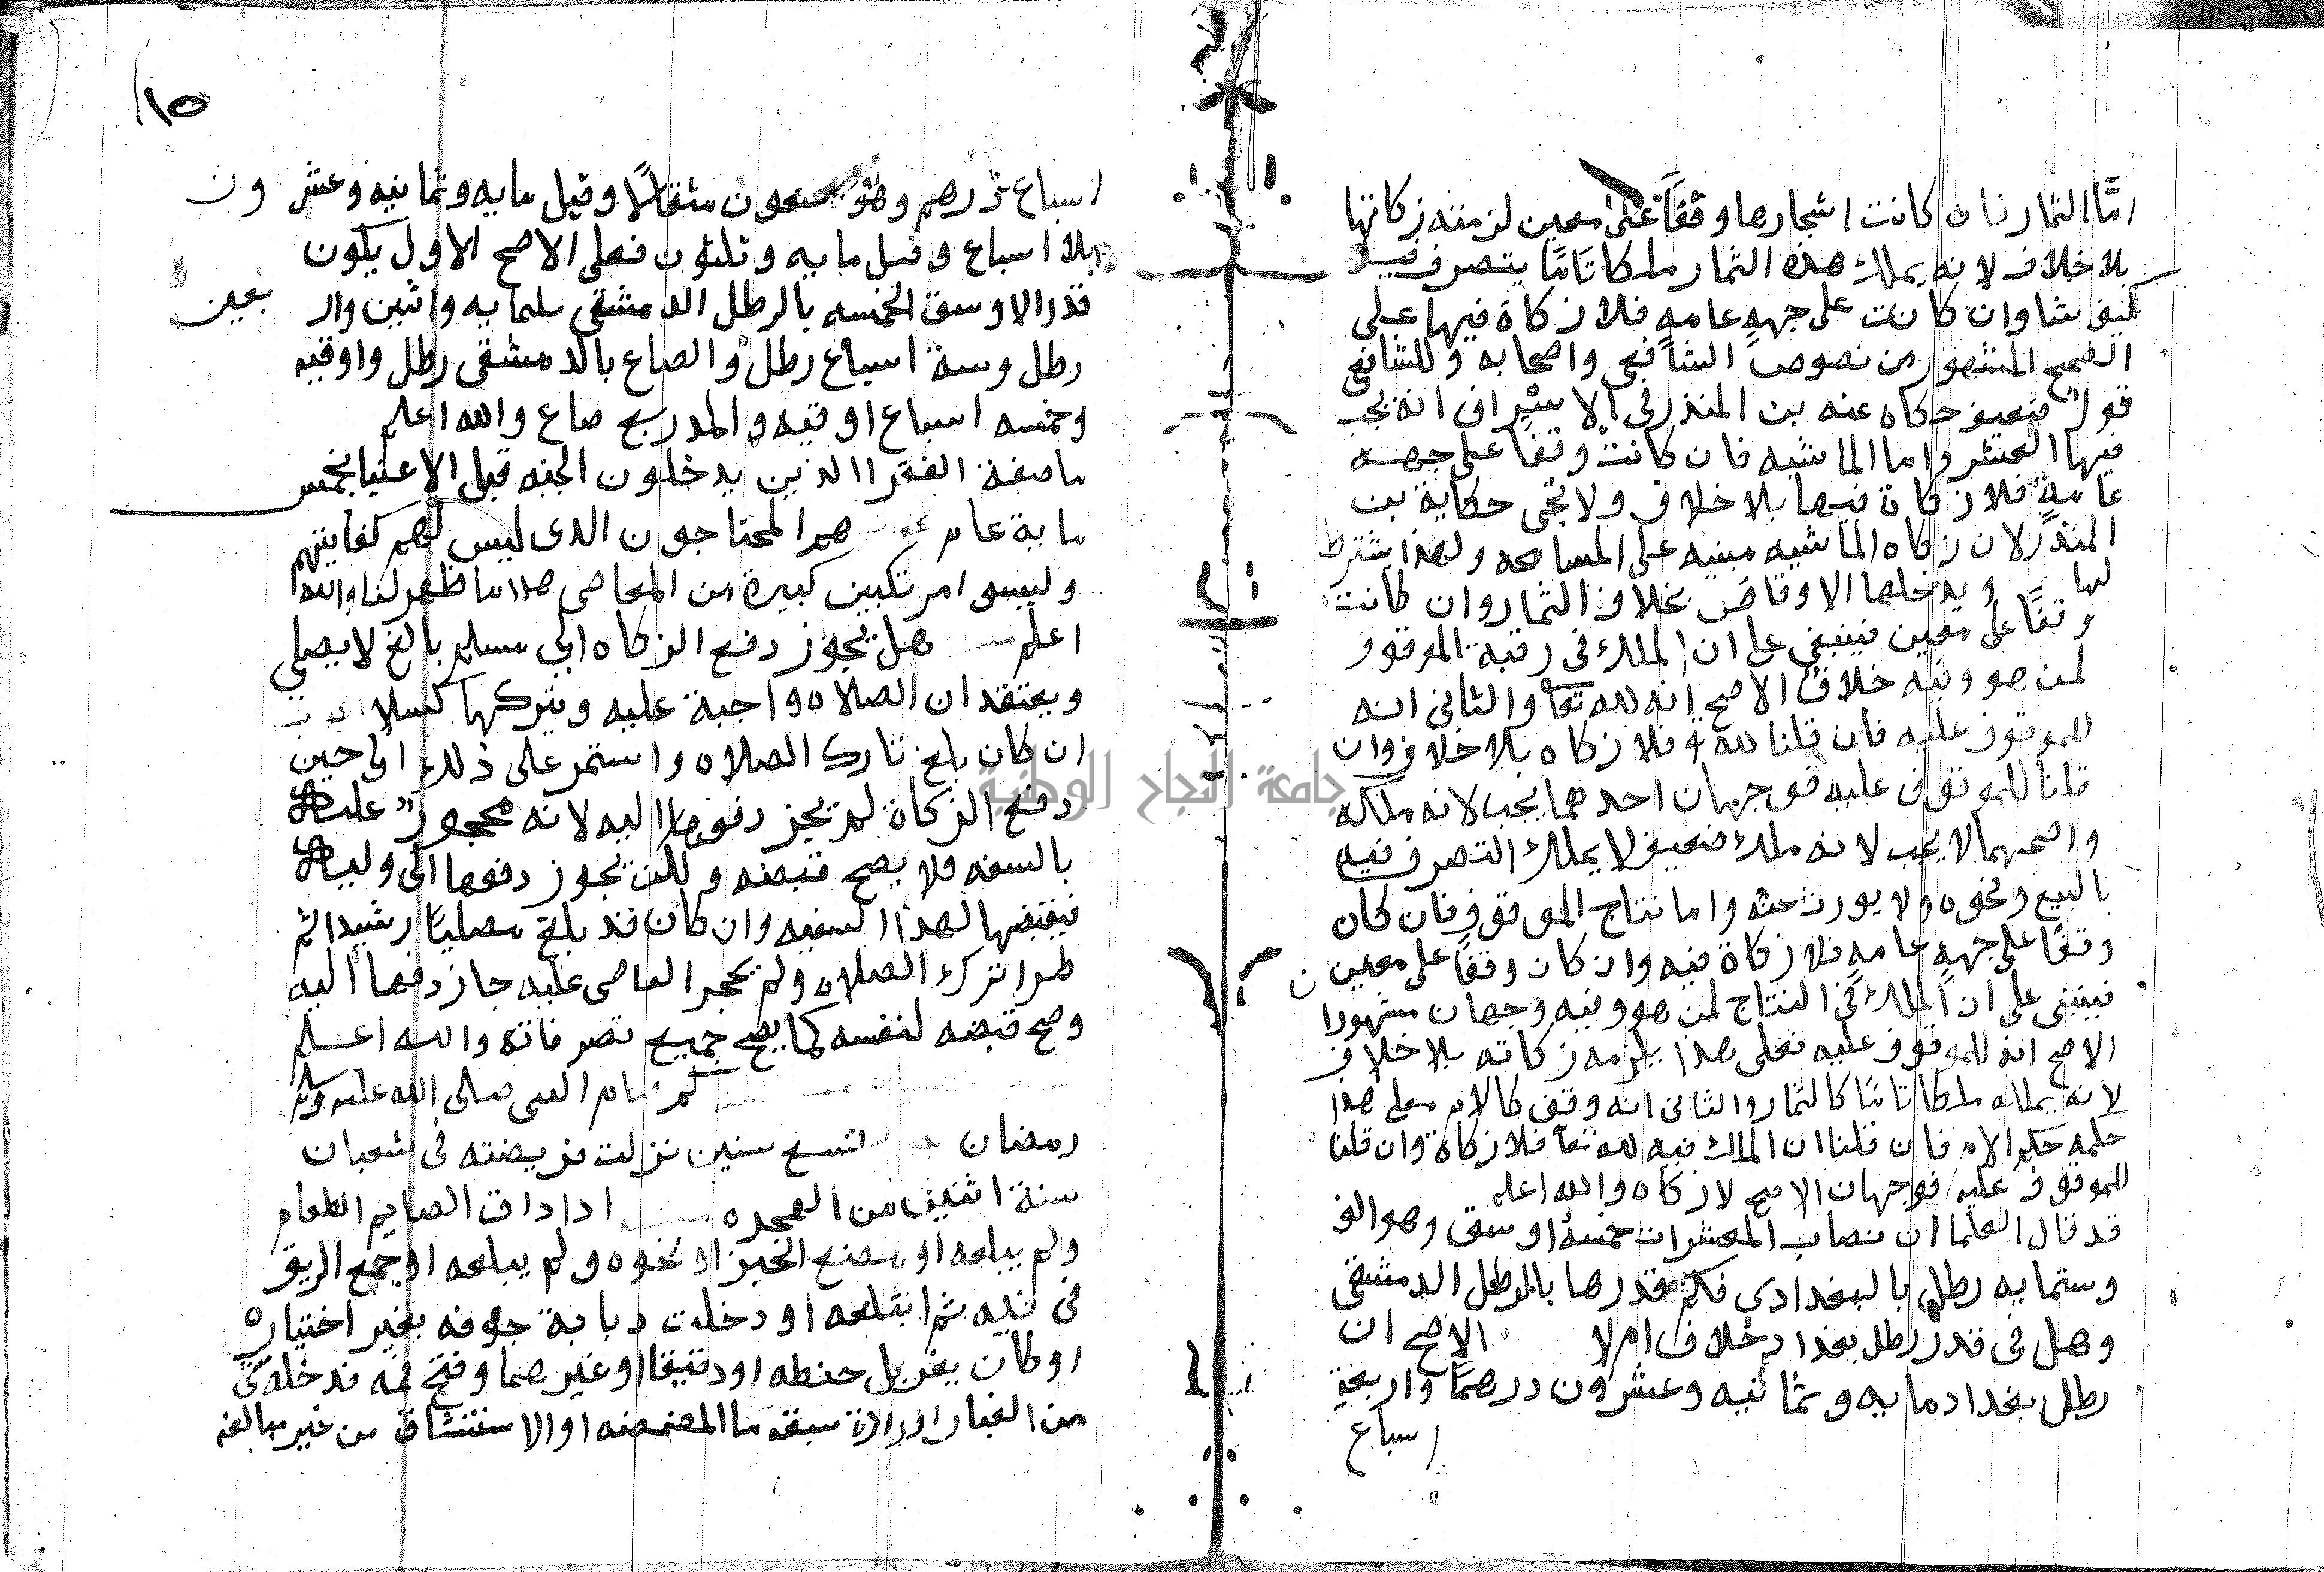 امَّا الثمار فان كانت اشجارها وقفًا على معين لزمته زكاتها
بلا خلاف لانه يملك هذه الثمار ملكا تامًا يتصرف فيه
كيف شا وان كانت على جهةٍ عامةٍ فلا زكاة فيها على
الصحيح المشهور من نصوص الشافعي واصحابه وللشافعي
قول ضعيف حكاه عنه بن المنذر في الاشراف انه يجب
فيها العشر واما الماشيه فان كانت وقفًا على جهه
عامةٍ فلا زكاة فيها بلا خلاف ولا تجى حكاية بن
المنذر لان زكاه الماشيه مبنيه على المسامحه ولهذا يشترط
لها ويدخلها الاوقاص بخلاف الثمار وان كانت
وقفًا على معين فينبغي على ان الملك في رقبة الموقوف
لمن هو وفيه خلاف الاصح انه لله تعا والثاني انه
للموقوف عليه فان قلنا لله فلا زكاه بلا خلاف وان
قلنا للموقوف عليه فوجهان احدهما يجب لانه ملكه
واصحهما لا يجب لانه ملك ضعيف لا يملك التصرف فيه
بالبيع ونحوه ولا يورث عنه واما نتاج الموقوف فان كان
وقفًا على جهةٍ عامةٍ فلا زكاة فيه وان كان وقفًا على معين
فينبني على ان الملك في النتاج لمن هو وفيه وجهان مشهوران
الاصح انه للموقوف عليه فعلى هذا يلزمه زكاته بلا خلاف
لانه يملكه ملكا تامًا كالثمار والثاني انه وقف كالام فعلى هذا
حكمه حكم الام فان قلنا ان الملك فيه لله تعا فلا زكاة وان قلنا
للموقوف عليه فوجهان الاصح لا زكاه والله اعلم
قد قال العلما ان نصاب المعشرات خمسة اوسق وهو الف
وستمايه رطل بالبغدادي فكم قدرها بالرطل الدمشقي
وهل في قدر رطل بغداد خلاف ام لا الاصح ان
رطل بغداد مايه وثمانيه وعشرون درهمًا واربعة
اسباع
١٥
اسباع درهم وهو تسعون مثقالًا وقيل مايه وثمانيه وعشرون
بلا اسباع وقيل مايه وثلثون فعلى الاصح الاول يكون
قدر الاوسق الخمسه بالرطل الدمشقي ثلثمايه واثنين واربعين
رطل وستة اسباع رطل والصاع بالدمشقي رطل واوقيه
وخمسه اسباع اوقيه والمد ربع صاع والله اعلم
ما صفة الفقرا الذين يدخلون الجنه قبل الاغنيا بخمس
ماية عام هم المحتاجون الذى ليس لهم كفايتهم
وليسو امرتكبين كبيرة من المعاصى هذا ما ظهر لنا والله
اعلم هل يجوز دفع الزكاه الى مسلم بالغ لا يصلي
ويعتقد ان الصلاه واجبة عليه ويتركها كسلا
ان كان بلغ تارك الصلاه واستمر على ذلك الى حين
دفع الزكاة لم يجز دفعها اليه لانه محجور عليه
بالسفه فلا يصح قبضه ولكن يجوز دفعها الى وليه
فيقبضها لهذا السفيه وان كان قد بلغ مصليًا رشيدا ثم
طرا ترك الصلاه ولم يحجر القاضى عليه جاز دفعها اليه
وصح قبضه لنفسه كما يصح جميع تصرفاته والله اعلم
كم صام النبى صلى الله عليه وسلم
رمضان تسع سنين نزلت فريضته فى شعبان
سنة اثنين من الهجره اذا ذاق الصايم الطعام
ولم يبلعه او مضغ الخبز او نحوه ولم يبلعه او جمع الريق
فى فيه ثم ابتلعه او دخلت ذبابة جوفه بغير اختياره
او كان يغربل حنطه او دقيقا او غيرهما وفتح فمه فدخله شى
من الغبار سبقه ما المضمضه او الاستنشاق من غير مبالغه
جامعة النجاح الوطنية